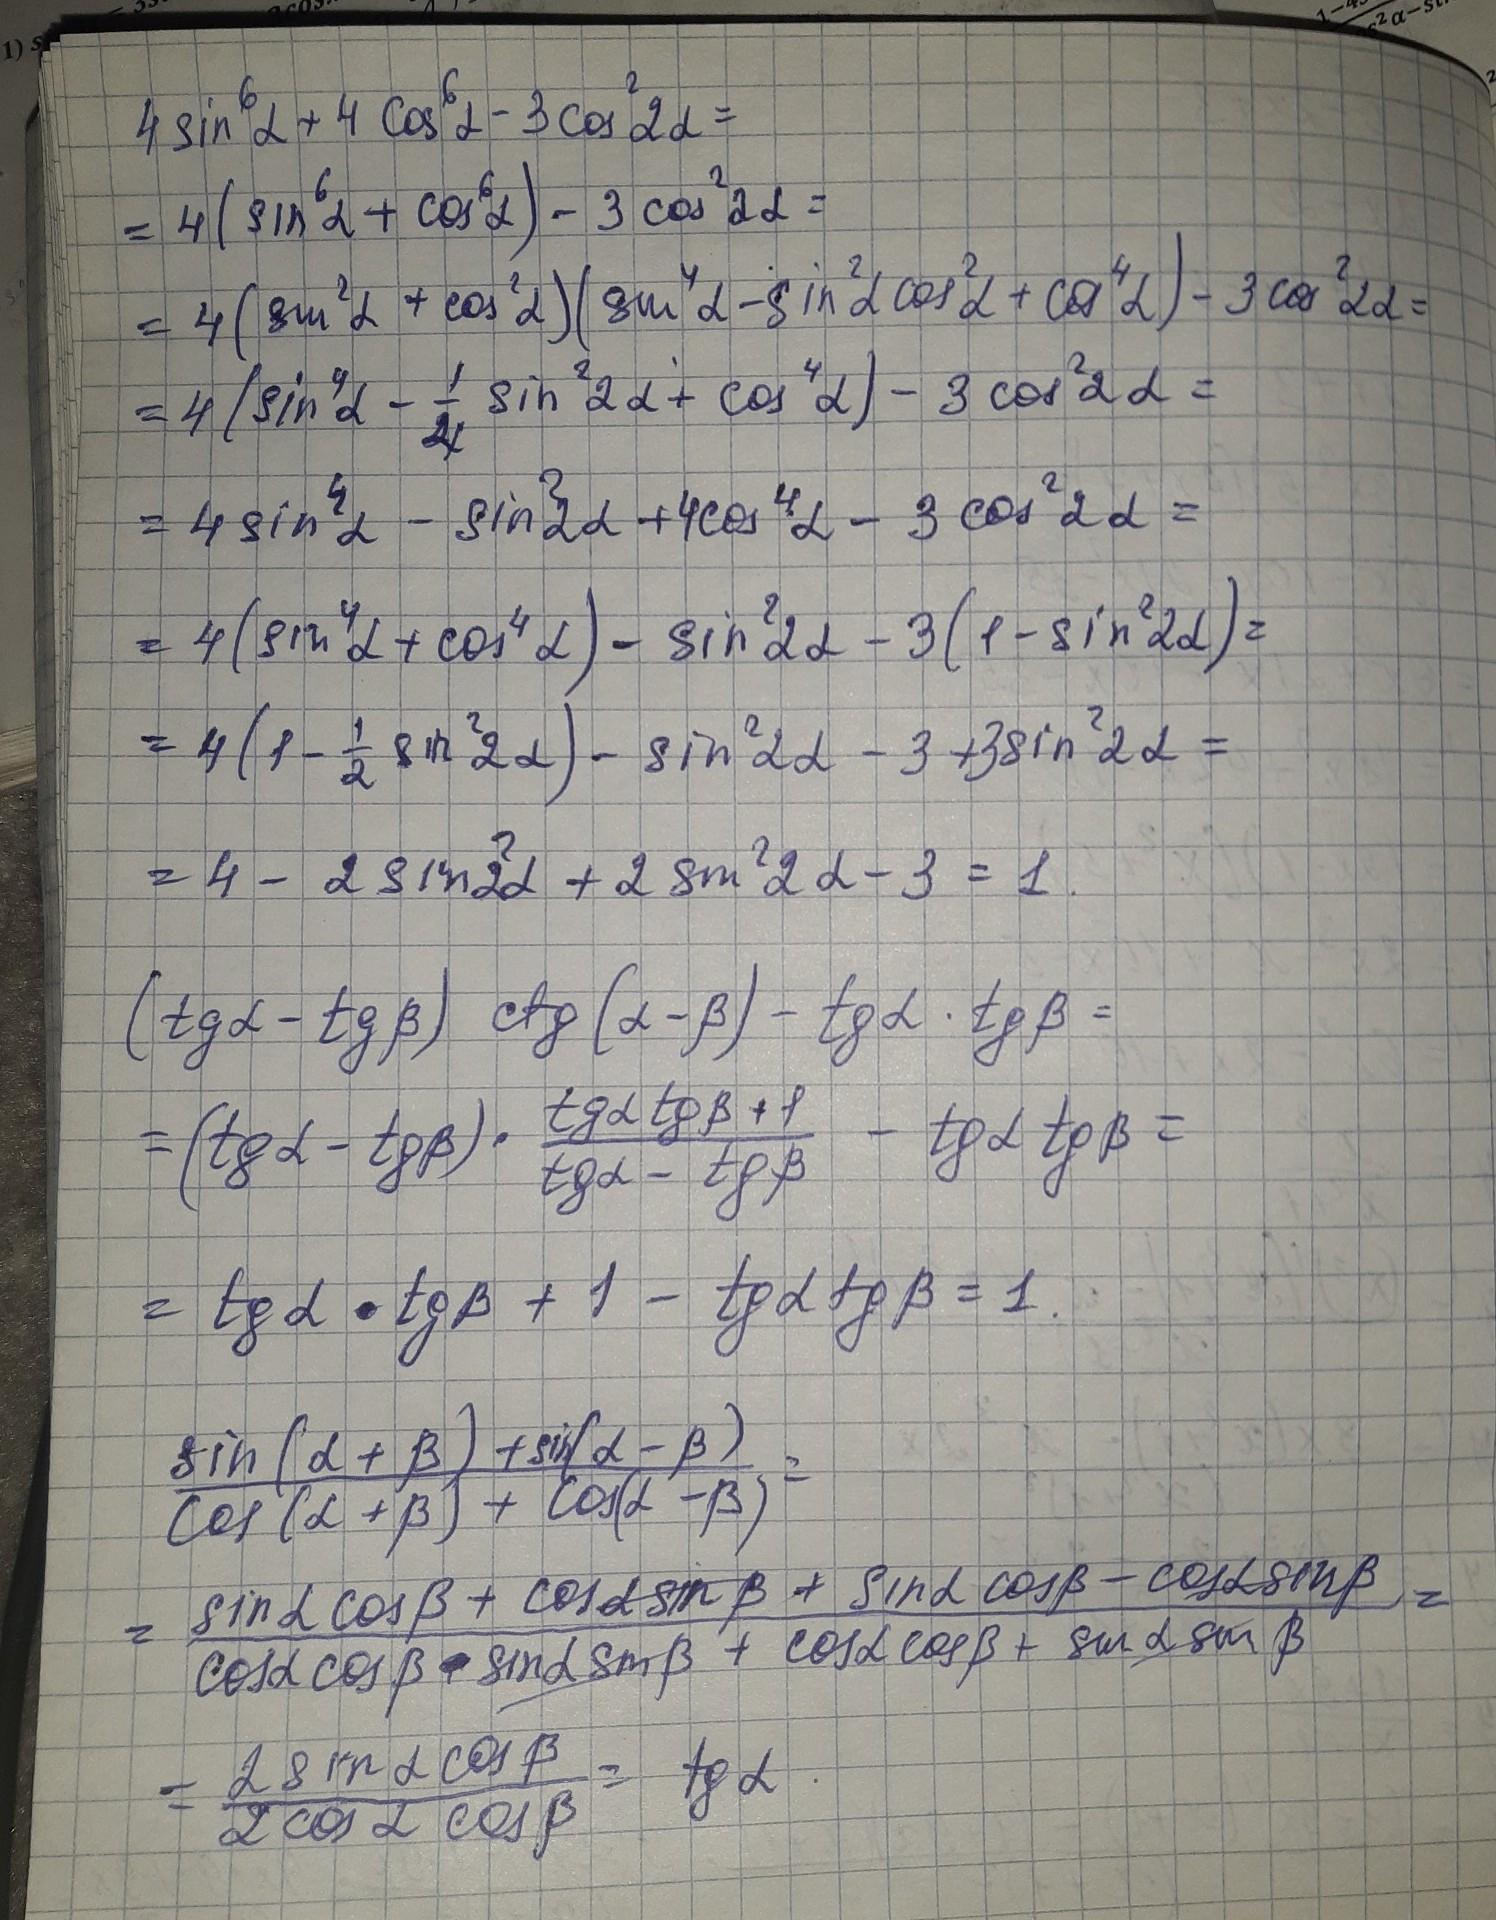 1) s
4 sin⁶α + 4 cos⁶α - 3 cos²2α =
= 4(sin⁶α + cos⁶α) - 3 cos²2α =
= 4(sin²α + cos²α)(sin⁴α - sin²α cos²α + cos⁴α) - 3 cos²2α =
= 4(sin⁴α - 1/4 sin²2α + cos⁴α) - 3 cos²2α =
= 4 sin⁴α - sin²2α + 4 cos⁴α - 3 cos²2α =
= 4(sin⁴α + cos⁴α) - sin²2α - 3(1 - sin²2α) =
= 4(1 - 1/2 sin²2α) - sin²2α - 3 + 3 sin²2α =
= 4 - 2 sin²2α + 2 sin²2α - 3 = 1.
(tgα - tgβ) ctg(α - β) - tgα · tgβ =
= (tgα - tgβ) · (tgα tgβ + 1)/(tgα - tgβ) - tgα tgβ =
= tgα · tgβ + 1 - tgα tgβ = 1.
(sin(α + β) + sin(α - β))/(cos(α + β) + cos(α - β)) =
= (sinα cosβ + cosα sinβ + sinα cosβ - cosα sinβ)/(cosα cosβ - sinα sinβ + cosα cosβ + sinα sinβ) =
= (2 sinα cosβ)/(2 cosα cosβ) = tgα.